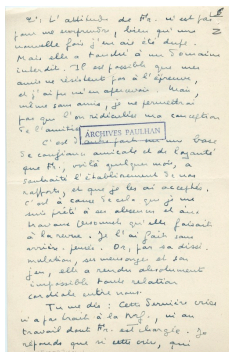 2°: L'attitude de M. n'est pas
pour me surprendre, bien qu'une
nouvelle fois j'en aie été dupe.
Mais elle a tendu à un Domaine
interdit. Il est possible que mes
amis ne résistent pas à l'épreuve,
et j'ai pu m'en apercevoir. Mais,
même sans amis, je ne permettrai
pas que l'on ridiculise ma conception
de l'amitié.
ARCHIVES PAULHAN
C'est d'autre part sur une base
de confiance amicale et de loyauté
que M., voilà quelques mois, a
souhaité l'établissement de nos
rapports, et que je les ai acceptés.
C'est à cause de cela que je me
suis prêté à ses absences et aux
travaux qu'elle faisait
à la revue. Je l'ai fait sans
arrière-pensée. Or, par sa dissi-
mulation, ses mensonges et son
jeu, elle a rendu absolument
impossible toute relation
cordiale entre nous.
Tu me dis : Cette dernière crise
n'a pas trait à la Nrf., ni au
travail dont M. est chargée. Je
réponds que si cette crise, qui